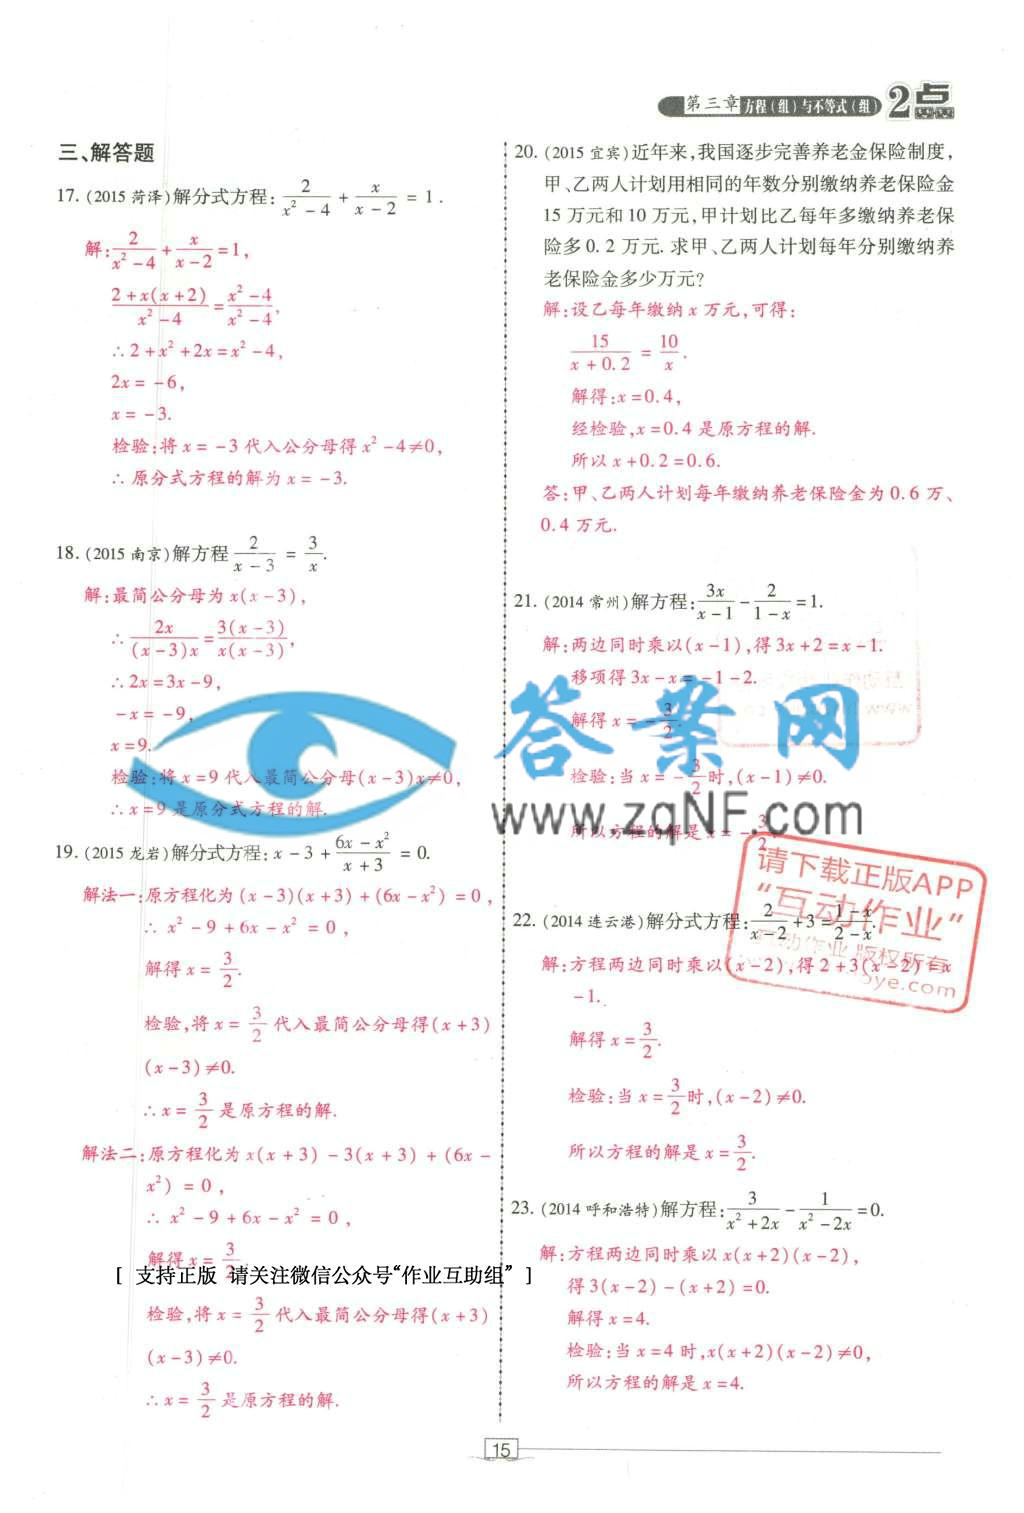 第三章 方程(组)与不等式(组) 2点
三、解答题
17. (2015 菏泽)解分式方程: 2/(x²-4) + x/(x-2) = 1.
解: 2/(x²-4) + x/(x-2) = 1,
(2+x(x+2))/(x²-4) = (x²-4)/(x²-4),
∴2+x²+2x=x²-4,
2x=-6,
x=-3.
检验:将x=-3代入公分母得x²-4≠0,
∴原分式方程的解为x=-3.
18. (2015 南京)解方程 2/(x-3) = 3/x.
解:最简公分母为x(x-3),
∴ 2x/((x-3)x) = 3(x-3)/(x(x-3)),
∴2x=3x-9,
-x=-9,
x=9.
检验:将x=9代入最简公分母(x-3)x≠0,
∴x=9是原分式方程的解.
19. (2015 龙岩)解分式方程: x-3+(6x-x²)/(x+3)=0.
解法一:原方程化为(x-3)(x+3)+(6x-x²)=0,
∴ x²-9+6x-x²=0,
解得x=3/2.
检验,将x=3/2代入最简公分母得(x+3)
(x-3)≠0.
∴x=3/2是原方程的解.
解法二:原方程化为x(x+3)-3(x+3)+(6x-
x²)=0,
∴ x²-9+6x-x²=0,
解得x=3/2.
[ 支持正版 请关注微信公众号“作业互助组” ]
检验,将x=3/2代入最简公分母得(x+3)
(x-3)≠0.
∴x=3/2是原方程的解.
20. (2015 宜宾)近年来,我国逐步完善养老金保险制度,
甲、乙两人计划用相同的年数分别缴纳养老保险金
15万元和10万元,甲计划比乙每年多缴纳养老保
险金0.2万元.求甲、乙两人计划每年分别缴纳养
老保险金多少万元?
解:设乙每年缴纳x万元,可得:
15/(x+0.2) = 10/x.
解得:x=0.4,
经检验,x=0.4是原方程的解.
所以x+0.2=0.6.
答:甲、乙两人计划每年缴纳养老保险金为0.6万、
0.4万元.
21. (2014 常州)解方程: 3x/(x-1) - 2/(1-x) = 1.
解:两边同时乘以(x-1),得3x+2=x-1.
移项得3x-x=-1-2.
解得x=-3/2.
检验:当x=-3/2时,(x-1)≠0.
所以方程的解是x=-3/2.
答案网
www.zqNF.com
请下载正版APP
“互动作业”
互动作业 版权所有
5ye.com
22. (2014 连云港)解分式方程: 2/(x-2)+3=(1-x)/(2-x).
解:方程两边同时乘以(x-2),得2+3(x-2)=x
-1.
解得x=3/2.
检验:当x=3/2时,(x-2)≠0.
所以方程的解是x=3/2.
23. (2014 呼和浩特)解方程: 3/(x²+2x) - 1/(x²-2x) = 0.
解:方程两边同时乘以x(x+2)(x-2),
得3(x-2)-(x+2)=0.
解得x=4.
检验:当x=4时,x(x+2)(x-2)≠0,
所以方程的解是x=4.
15